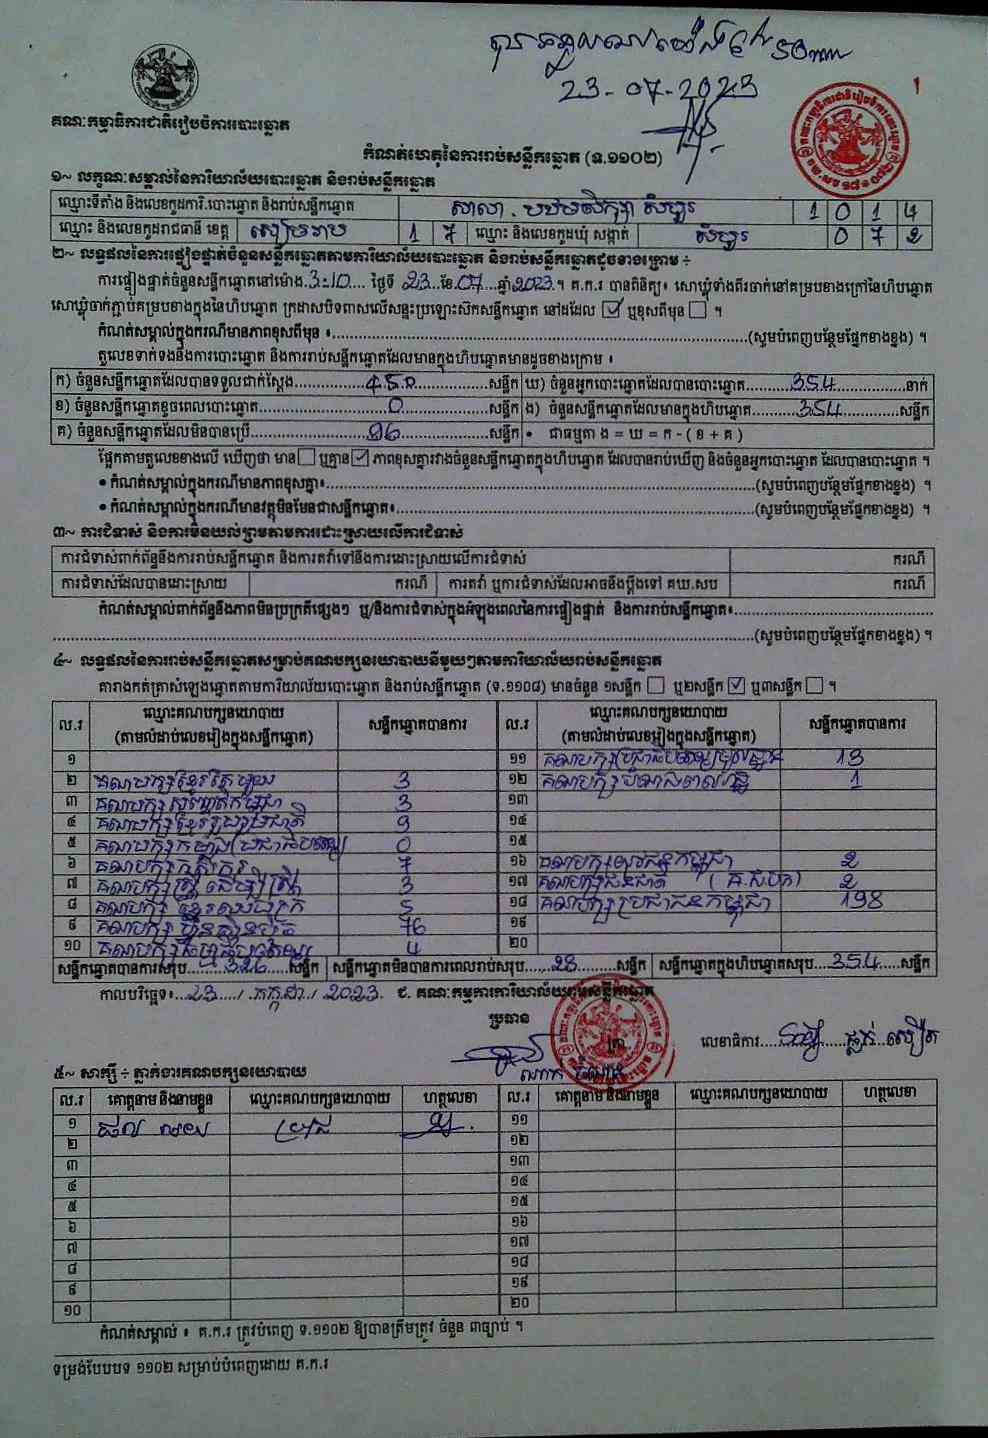 23-07-2023
គណៈកម្មាធិការជាតិរៀបចំការបោះឆ្នោត
កំណត់ហេតុនៃការរាប់សន្លឹកឆ្នោត (ទ.១១០២)
១~ លក្ខណៈសម្គាល់នៃការិយាល័យបោះឆ្នោត និងរាប់សន្លឹកឆ្នោត
ឈ្មោះទីតាំង និងលេខកូដការិ.បោះឆ្នោត និងរាប់សន្លឹកឆ្នោត សាលា បឋមសិក្សា 1 0 1 4
ឈ្មោះ និងលេខកូដរាជធានី ខេត្ត សៀមរាប 1 7 ឈ្មោះ និងលេខកូដឃុំ សង្កាត់ 0 7 2
២~ លទ្ធផលនៃការផ្ទៀងផ្ទាត់ចំនួនសន្លឹកឆ្នោតតាមការិយាល័យបោះឆ្នោត និងរាប់សន្លឹកឆ្នោតដូចខាងក្រោម ÷
ការផ្ទៀងផ្ទាត់ចំនួនសន្លឹកឆ្នោតនៅម៉ោង 3:10 ថ្ងៃទី 23 ខែ 07 ឆ្នាំ 2023 ។ គ.ក.រ បានពិនិត្យ៖ សោឃ្លុំទាំងពីរចាក់នៅគម្របខាងក្រៅនៃហិបឆ្នោត
សោឃ្លុំចាក់ភ្ជាប់គម្របខាងក្នុងនៃហិបឆ្នោត ក្រដាសបិទពាសលើសន្ទះប្រឡោះស៊កសន្លឹកឆ្នោត នៅដដែល ☑ ឬខុសពីមុន ☐ ។
កំណត់សម្គាល់ក្នុងករណីមានភាពខុសពីមុន ៖ (សូមបំពេញបន្ថែមផ្នែកខាងខ្នង) ។
តួលេខទាក់ទងនឹងការបោះឆ្នោត និងការរាប់សន្លឹកឆ្នោតដែលមានក្នុងហិបឆ្នោតមានដូចខាងក្រោម ៖
ក) ចំនួនសន្លឹកឆ្នោតដែលបានទទួលជាក់ស្តែង 450 សន្លឹក ឃ) ចំនួនអ្នកបោះឆ្នោតដែលបានបោះឆ្នោត 354 នាក់
ខ) ចំនួនសន្លឹកឆ្នោតខូចពេលបោះឆ្នោត 0 សន្លឹក ង) ចំនួនសន្លឹកឆ្នោតដែលមានក្នុងហិបឆ្នោត 354 សន្លឹក
គ) ចំនួនសន្លឹកឆ្នោតដែលមិនបានប្រើ 96 សន្លឹក • ជាធម្មតា ង = ឃ = ក - ( ខ + គ )
ផ្អែកតាមតួលេខខាងលើ ឃើញថា មាន ☐ ឬគ្មាន ☑ ភាពខុសគ្នារវាងចំនួនសន្លឹកឆ្នោតក្នុងហិបឆ្នោត ដែលបានរាប់ឃើញ និងចំនួនអ្នកបោះឆ្នោត ដែលបានបោះឆ្នោត ។
• កំណត់សម្គាល់ក្នុងករណីមានភាពខុសគ្នា៖ (សូមបំពេញបន្ថែមផ្នែកខាងខ្នង) ។
• កំណត់សម្គាល់ក្នុងករណីមានវត្ថុមិនមែនជាសន្លឹកឆ្នោត៖ (សូមបំពេញបន្ថែមផ្នែកខាងខ្នង) ។
៣~ ការជំទាស់ និងការមិនយល់ព្រមតាមការដោះស្រាយលើការជំទាស់
ការជំទាស់ពាក់ព័ន្ធនឹងការរាប់សន្លឹកឆ្នោត និងការតវ៉ាទៅនឹងការដោះស្រាយលើការជំទាស់ ករណី
ការជំទាស់ដែលបានដោះស្រាយ ករណី ការតវ៉ា ឬការជំទាស់ដែលអាចនឹងប្តឹងទៅ គឃ.សប ករណី
កំណត់សម្គាល់ពាក់ព័ន្ធនឹងភាពមិនប្រក្រតីផ្សេងៗ ឬ/និងការជំទាស់ក្នុងអំឡុងពេលនៃការផ្ទៀងផ្ទាត់ និងការរាប់សន្លឹកឆ្នោត៖
(សូមបំពេញបន្ថែមផ្នែកខាងខ្នង) ។
៤~ លទ្ធផលនៃការរាប់សន្លឹកឆ្នោតសម្រាប់គណបក្សនយោបាយនីមួយៗតាមការិយាល័យរាប់សន្លឹកឆ្នោត
តារាងកត់ត្រាសំឡេងឆ្នោតតាមការិយាល័យបោះឆ្នោត និងរាប់សន្លឹកឆ្នោត (ទ.១១០៨) មានចំនួន ១សន្លឹក ☐ ឬ២សន្លឹក ☑ ឬ៣សន្លឹក ☐ ។
ល.រ ឈ្មោះគណបក្សនយោបាយ (តាមលំដាប់លេខរៀងក្នុងសន្លឹកឆ្នោត) សន្លឹកឆ្នោតបានការ ល.រ ឈ្មោះគណបក្សនយោបាយ (តាមលំដាប់លេខរៀងក្នុងសន្លឹកឆ្នោត) សន្លឹកឆ្នោតបានការ
១ ១១ គណបក្សប្រជាធិបតេយ្យមូលដ្ឋាន 13
២ គណបក្សខ្មែរតែមួយ 3 ១២ គណបក្ស 1
៣ គណបក្ស 3 ១៣
៤ គណបក្សខ្មែររួបរួមជាតិ 9 ១៤
៥ គណបក្សកម្លាំងប្រជាធិបតេយ្យ 0 ១៥
៦ គណបក្សកសិករ 7 ១៦ គណបក្សយុវជនកម្ពុជា 2
៧ គណបក្សស្ត្រីដើម្បីស្ត្រី 3 ១៧ គណបក្សជនជាតិ 2
៨ គណបក្ស 5 ១៨ គណបក្សប្រជាជនកម្ពុជា 198
៩ គណបក្សហ៊្វុនស៊ិនប៉ិច 76 ១៩
១០ គណបក្ស 4 ២០
សន្លឹកឆ្នោតបានការសរុប 326 សន្លឹក សន្លឹកឆ្នោតមិនបានការពេលរាប់សរុប 28 សន្លឹក សន្លឹកឆ្នោតក្នុងហិបឆ្នោតសរុប 354 សន្លឹក
កាលបរិច្ឆេទ៖ 23 / កក្កដា / 2023 ជ. គណៈកម្មការការិយាល័យរាប់សន្លឹកឆ្នោត
ប្រធាន
លេខាធិការ
៥~ សាក្សី ÷ ភ្នាក់ងារគណបក្សនយោបាយ
ល.រ គោត្តនាម និងនាមខ្លួន ឈ្មោះគណបក្សនយោបាយ ហត្ថលេខា ល.រ គោត្តនាម និងនាមខ្លួន ឈ្មោះគណបក្សនយោបាយ ហត្ថលេខា
១ ១១
២ ១២
៣ ១៣
៤ ១៤
៥ ១៥
៦ ១៦
៧ ១៧
៨ ១៨
៩ ១៩
១០ ២០
កំណត់សម្គាល់ ៖ គ.ក.រ ត្រូវបំពេញ ទ.១១០២ ឱ្យបានត្រឹមត្រូវ ចំនួន ៣ច្បាប់ ។
ទម្រង់បែបបទ ១១០២ សម្រាប់បំពេញដោយ គ.ក.រ